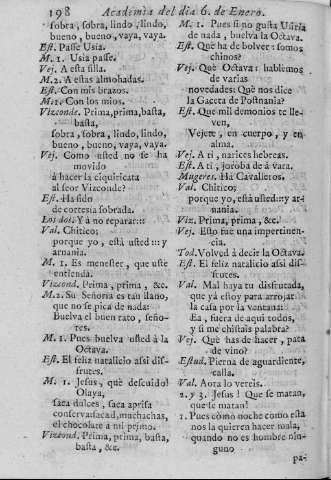 198 Academia del dia 6. de Enero.
sobra, sobra, lindo, lindo,
bueno, bueno, vaya, vaya.
Est. Passe Usia.
M. 1. Usia passe.
Vej. A esta silla.
M. 2. A estas almohadas.
Est. Con mis brazos.
M. 2. Con los mios.
Vizconde. Prima, prima, basta,
basta,
sobra, sobra, lindo, lindo,
bueno, bueno, vaya, vaya.
Vej. Como usted no se ha
movido
à hacer la ciquiricata
al seor Vizconde?
Est. Ha sido
de cortesia sobrada.
Los dos. Yà no reparar:::
Val. Chitico;
porque yo, està usted:: y
arnania.
M. 1. Es menester, que uste
entienda.
Vizcond. Prima, prima, &c.
M. 2. Su Señoria es tan llano,
que no se pica de nada:
Buelva el buen rato, señores.
M. 1. Pues buelva usted à la
Octava.
Est. El feliz natalicio assi disfrutes.
M. 1. Jesus, què descuido!
Olaya,
saca dulces, saca aprisa
conservas; acad, muchachas,
el chocolate à mi primo.
Vizcond. Prima, prima, basta,
basta, &c.
M. 1. Pues si no gusta Usiria
de nada, buelva la Octava.
Est. Què ha de bolver: somos
chinos?
Vej. Què Octava: hablèmos
de varias
novedades: Què nos dice
la Gaceta de Posnania?
Est. Que mil demonios te lleven,
Vejete, en cuerpo, y en
alma.
Vej. A tì, narices hebreas.
Est. A tì, joroba de à vara.
Mugeres. Ha Cavalleros.
Val. Chitico;
porque yo, està usted::: y arnania.
Viz. Prima, prima, &c.
Vej. Esto fue una impertinencia.
Tod. Volved à decir la Octava.
Est. El feliz natalicio assi disfrutes.
Val. Mal haya tu disfrutada,
que yà estoy para arrojar
la casa por la ventana:
Ea, fuera de aqui todos,
y si me chistais palabra?
Vej. Què has de hacer, pata
de vino?
Estud. Pierna de aguardiente,
calla.
Val. Aora lo vereis.
2. y 3. Jesus! Que se matan,
que se matan!
1. Pues còmo noche como està
nos la quieren hacer mala,
quando no es hombre ninguno
pa-